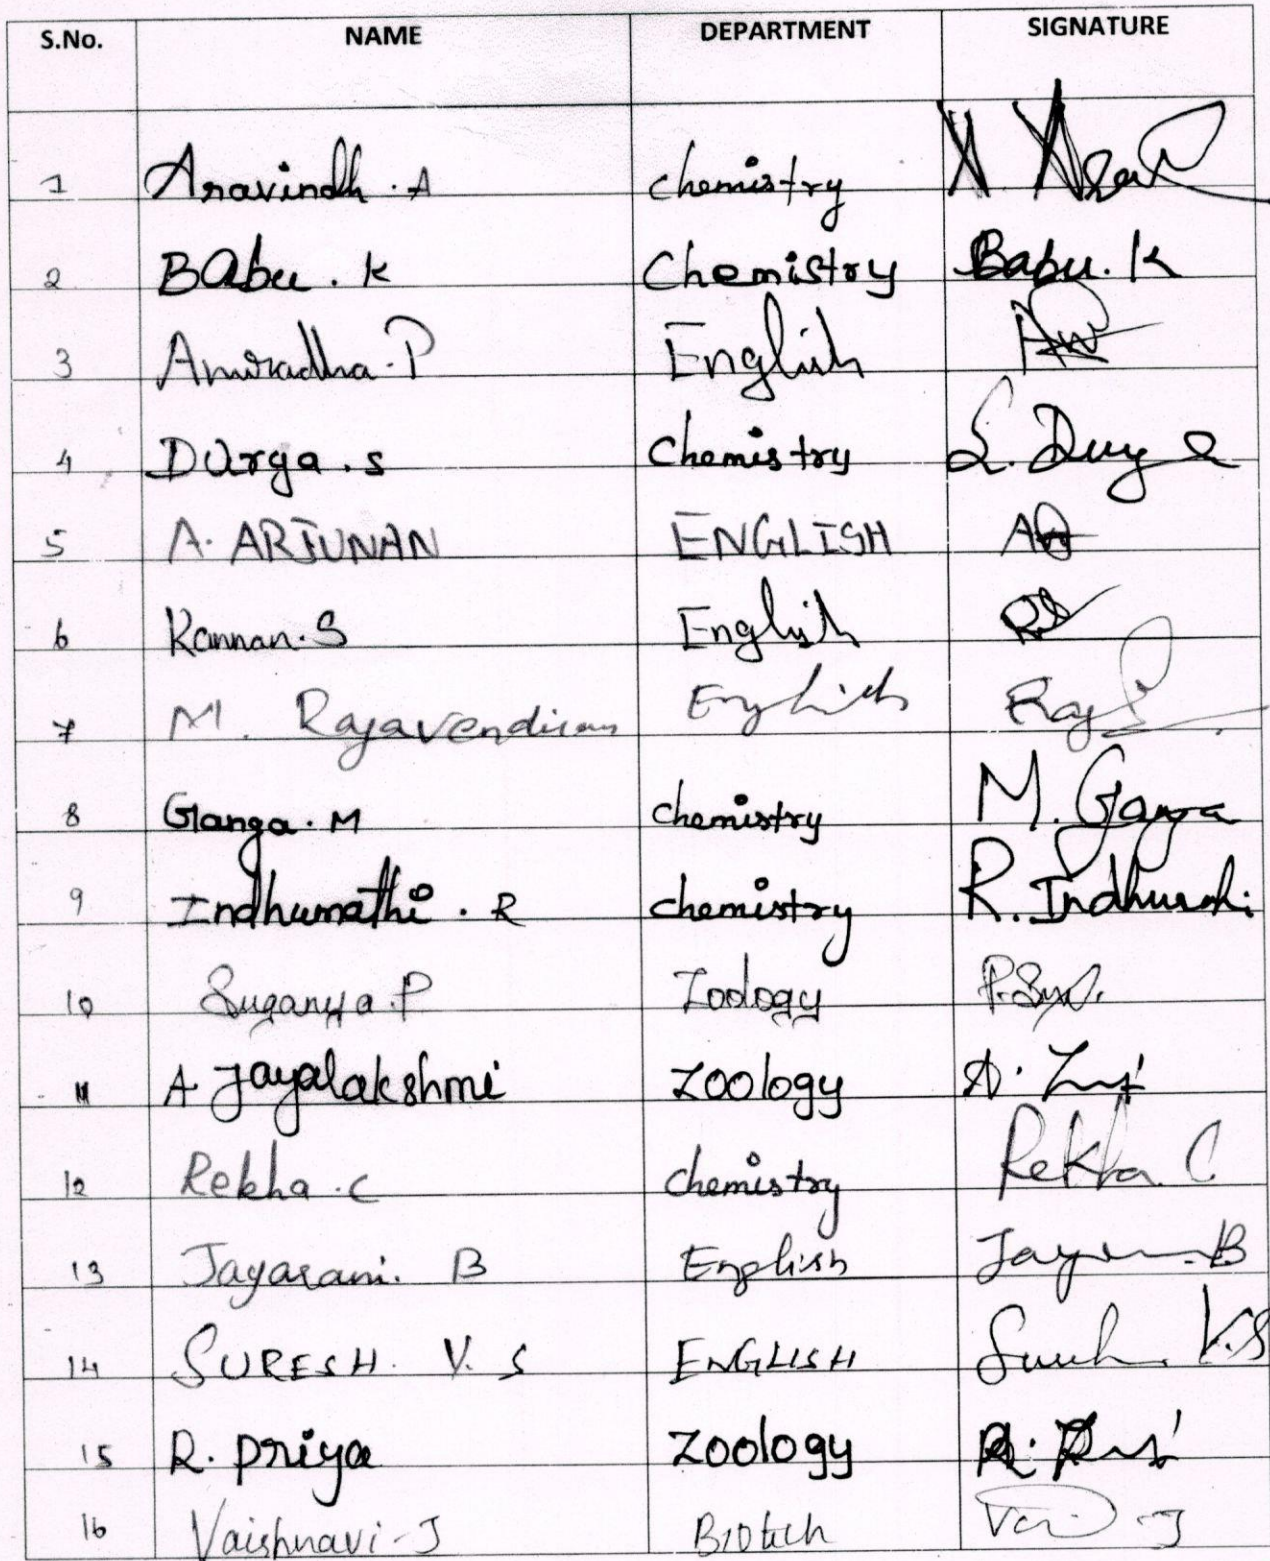 S.No. NAME DEPARTMENT SIGNATURE
1 Aravindh . A chemistry
2 BAbu . K Chemistry Babu. K
3 Anuradha. P English
4 Durga . s Chemistry S. Durga
5 A. ARJUNAN ENGLISH
6 Kannan. S English
7 M. Rajavendiran English
8 Ganga. M chemistry M. Ganga
9 Indhumathi . R chemistry R. Indhumathi
10 Suganya. P Zoology
11 A Jayalakshmi Zoology
12 Rekha. C chemistry Rekha. C
13 Jayarani. B English
14 SURESH. V. S ENGLISH
15 R. Priya Zoology
16 Vaishnavi - J Biotech